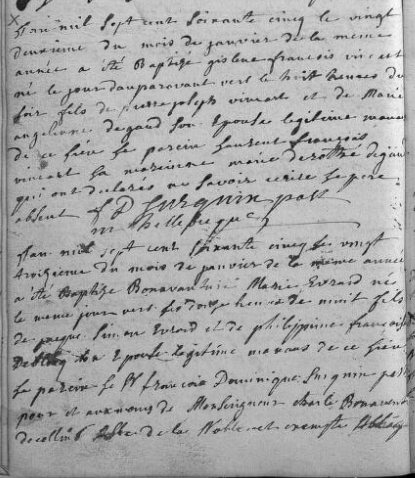 L'an mil sept cent soixante cinq le vingt
deuxieme du mois de janvier de la meme
année a été Baptizé gislene francois vincart
né le jour dauparavant vers le huit heures du
soir fils de pierre joseph vincart et de Marie
angelienne degand son Epouse legitime manans
de ce lieu le parein laurent francois
vincart la mareinne marie
qui ont declarés ne savoir ecrire le pere
absent
L'an mil sept cent soixante cinq le vingt
troizieme du mois de janvier de la meme année
a été Baptizé Bonavanture Marie Evrard né
le meme jour vers les douze heures de nuit fils
de jacque Simon Evrard et de philippinne francoise
sa Epouse legitime manans de ce lieu
le parein le Sr francois Dominique Surquin
pour et aux noms de Monseigneur charle Bonaventure
de la Noble et exempte Abbaye